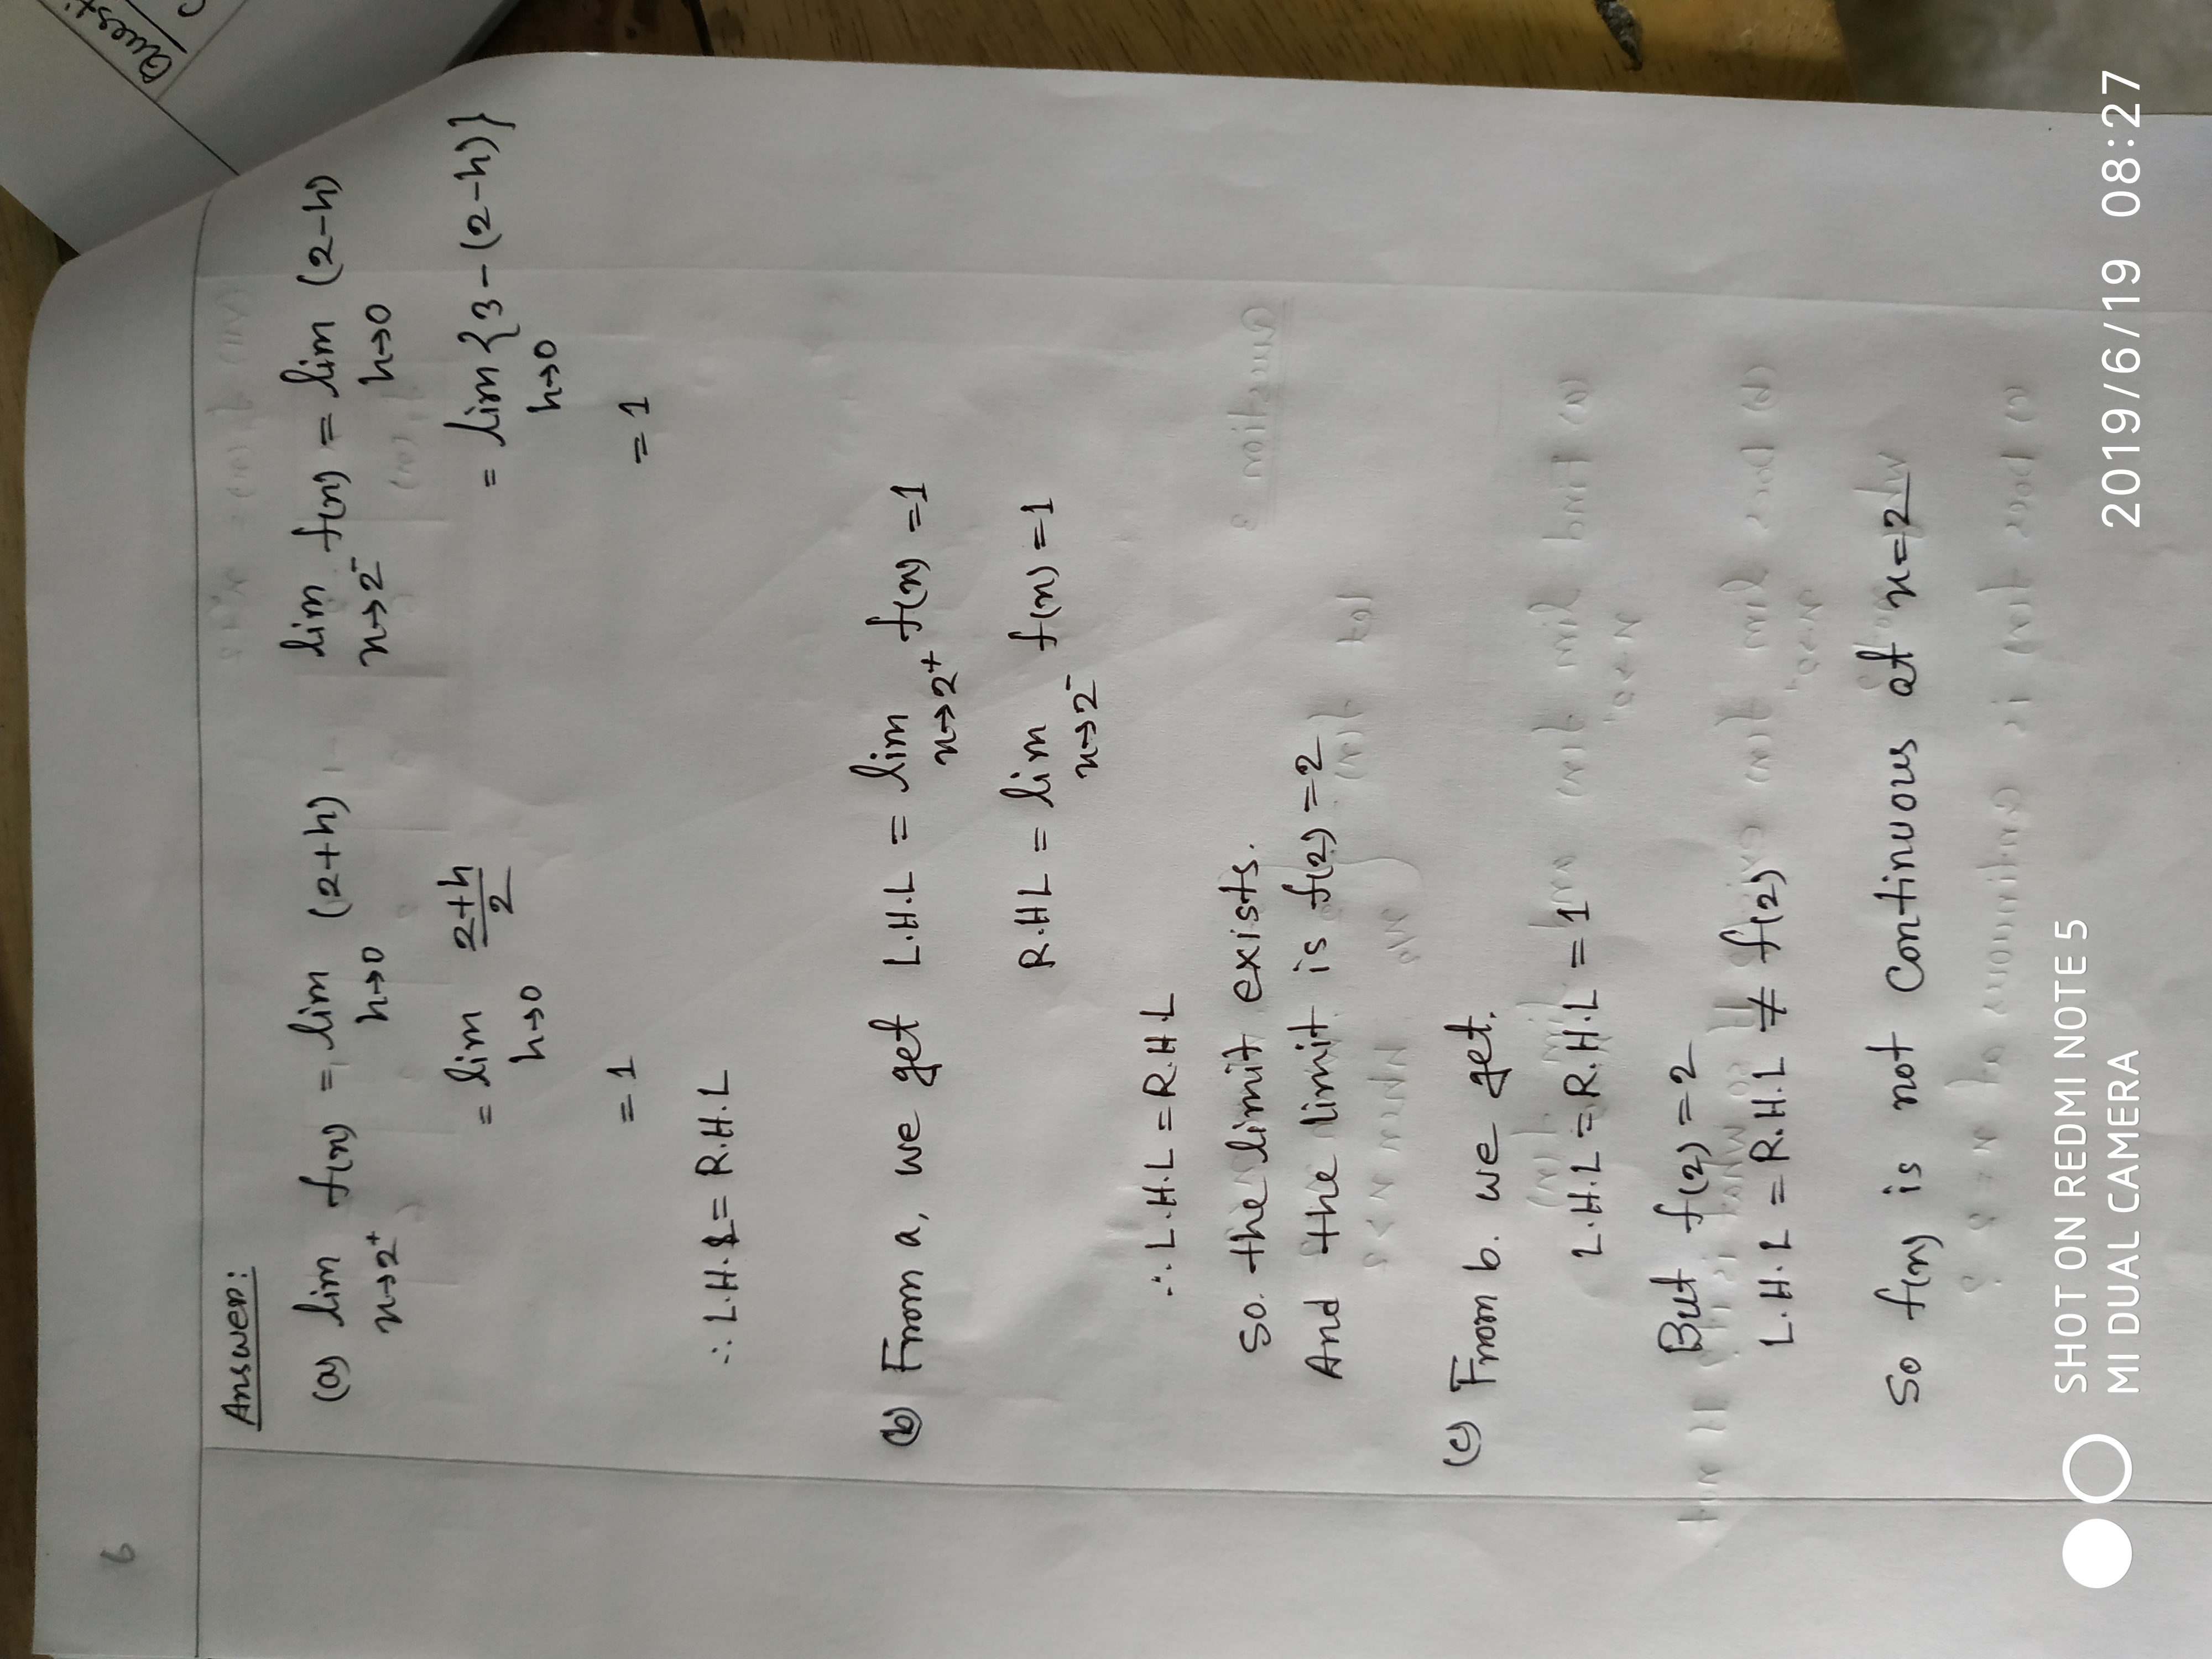 6
Questi
Answer:
(a) lim f(x) = lim (2+h)
x→2⁺ h→0
= lim (2+h)/2
h→0
= 1
lim f(x) = lim (2-h)
x→2⁻ h→0
= lim {3-(2-h)}
h→0
= 1
∴ L.H.L = R.H.L
(b) From a, we get L.H.L = lim f(x) = 1
x→2⁺
R.HL = lim f(x) = 1
x→2⁻
∴ L.H.L = R.H.L
So. the limit exists.
And the limit is f(2) = 2
(c) From b. we get.
L.H.L = R.H.L = 1
But f(2) = 2
L.H.L = R.H.L ≠ f(2)
So f(x) is not continuous at x=2
SHOT ON REDMI NOTE 5
MI DUAL CAMERA
2019/6/19 08:27